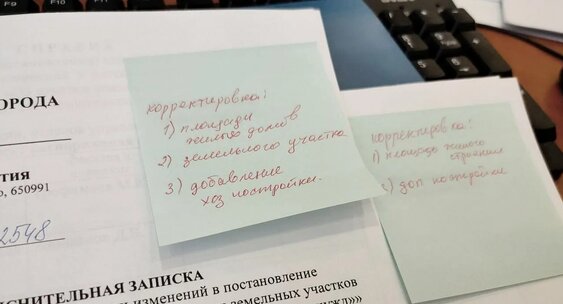 F9
F10
F11
ОРОДА
тия
о, 650991
2548
СНИТЕЛЬНАЯ ЗАПИСКА
изменений в постановление
земельных участков
нужд»»
корректировка:
1) площади
жилых домов
2) земельного участка
3) добавление
хоз постройки.
корректировка:
1) площадь жилого
строения
доп постройки